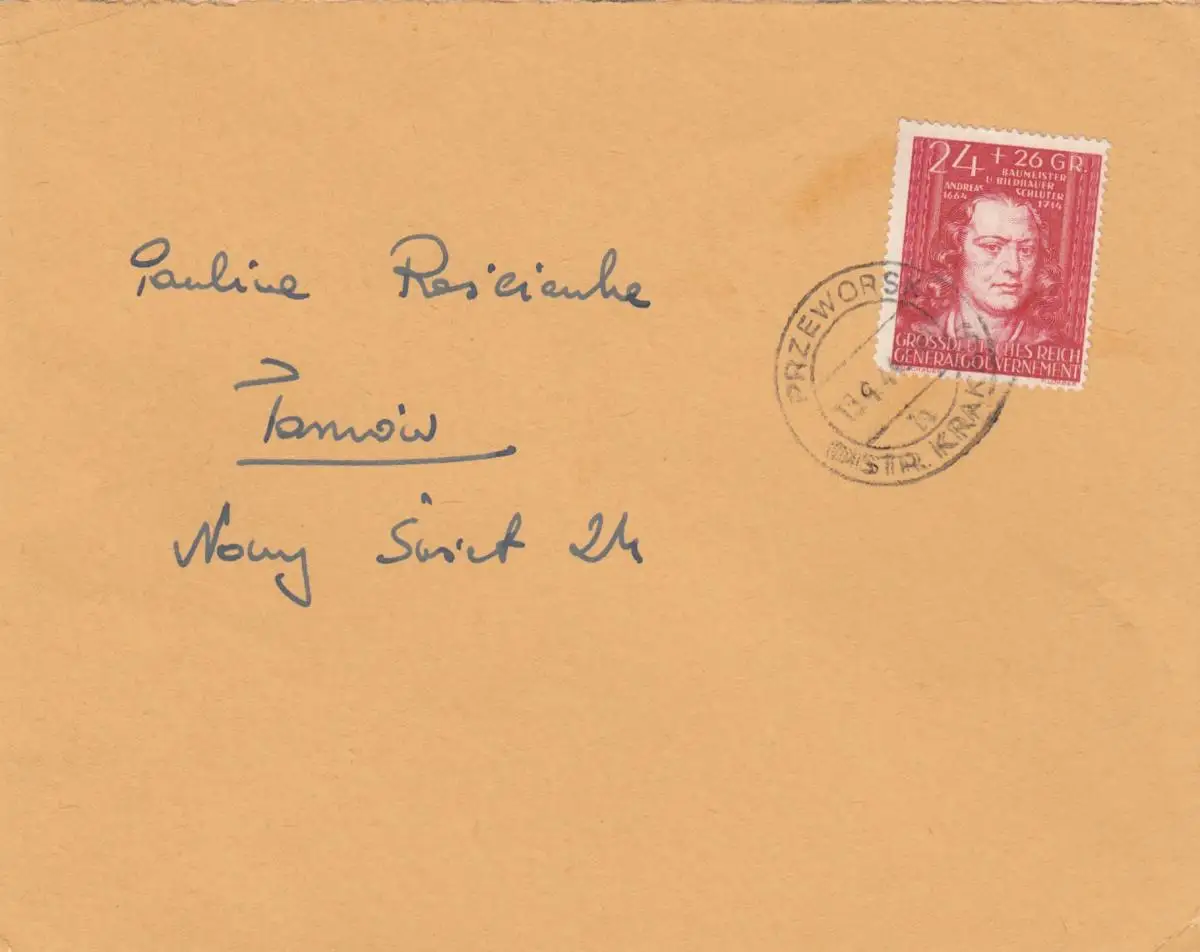 24 + 26 GR.
BAUMEISTER
U. BILDHAUER
ANDREAS SCHLÜTER
1664 1714
GROSSDEUTSCHES REICH
GENERALGOUVERNEMENT
PRZEWORSK
13.9.4
DISTR. KRAKAU
Pauline
Tarnów
Nowy Świat 24